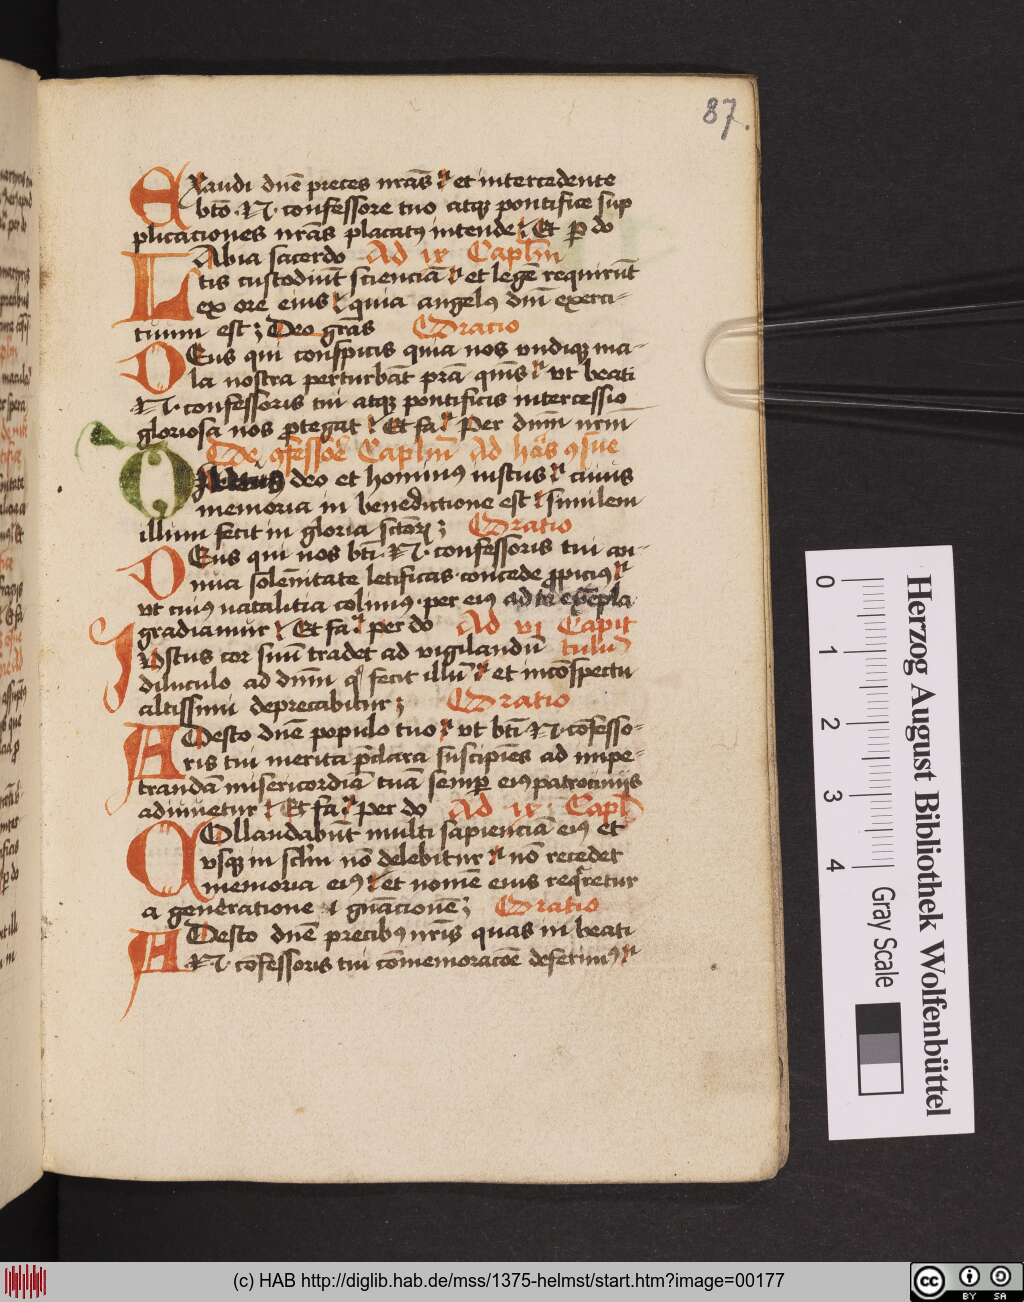 87.
EXaudi dnē preces nrās et intercedente
btō .N. confessore tuo atqꝫ pontifice sup
plicaciones nrās placatꝰ intende Et ꝑ do
LAbia sacerdo Ad ix Caplm
tis custodiūt scienciā et legē requirūt
ex ore eius quia angelꝰ dnī exerci-
tuum est Deo grās Oratio
DEus qui conspicis quia nos vndiqꝫ ma-
la nostra perturbāt prā qms vt beati
.N. confessoris tui atqꝫ pontificis intercessio
gloriosa nos ꝓtegat Et fa Per dnm nrm
De ꝯfessoē Caplm Ad hās ꝯsue
deo et hominiꝰ iustus cuius
memoria in benedictione est similem
illum fecit in gloria sctōꝝ Oratio
DEus qui nos bti .N. confessoris tui an-
nua solēnitate letificas concede ꝓpiciꝰ
vt cuiꝰ natalitia colimꝰ per eiꝰ ad exempla
gradiamur Et fa per do Ad vi Capit
IVstus cor suū tradet ad vigilandū tulū
diluculo ad dnm qͥ fecit illū et in cōspectu
altissimi deprecabitur Oratio
ADesto dnē populo tuo vt bti .N. cōfesso-
ris tui merita p̄clara suscipiēs ad impe-
trandā misericordiā tuā semꝑ eiꝰ patrociniis
adiuuetur Et fa per do Ad ix Caplm
COllaudabūt multi sapienciā eiꝰ et
vsqꝫ in sclm nō delebitur nō recedet
memoria eiꝰ et nomē eius reqͥretur
a generatione ī gnāacionē Oratio
ADesto dnē precibꝰ nris quas in beati
.N. cōfessoris tui cōmemoracōe deferimꝰ
0 1 2 3 4
Gray Scale
Herzog August Bibliothek Wolfenbüttel
(c) HAB http://diglib.hab.de/mss/1375-helmst/start.htm?image=00177
cc BY SA